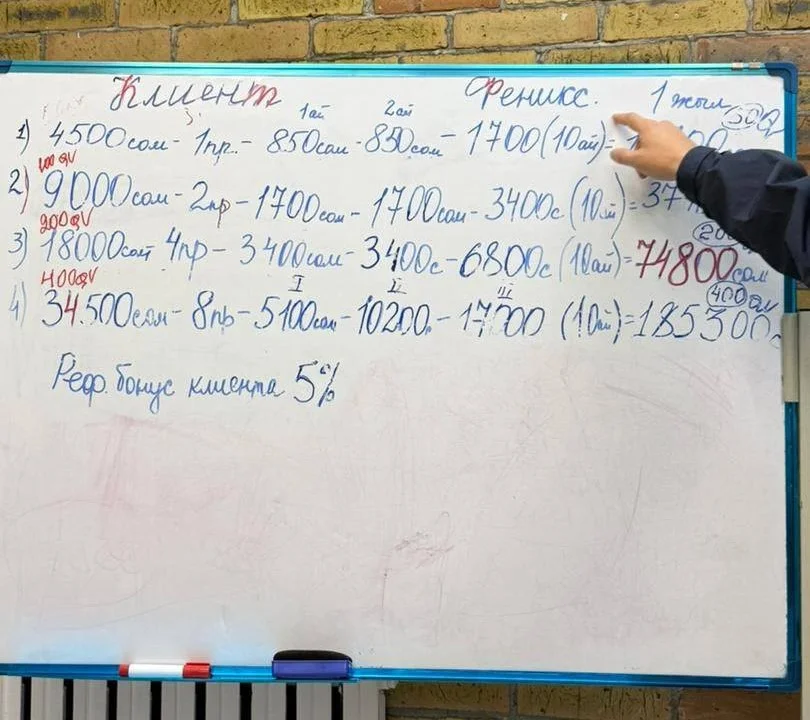 Клиент Феникс. 1 жыл
1ай 2ай 50QV
1) 4500сом - 1пр. - 850сом - 850сом - 1700 (10ай) =
100QV
2) 9000сом - 2пр - 1700сом - 1700сом - 3400с (10ай) = 37
200QV
3) 18000сом 4пр - 3400сом - 3400с - 6800с (10ай) = 74800сом
400QV I II III 400QV
4) 34.500сом - 8пр - 5100сом - 10200с - 17000 (10ай) = 185300с
Реф. бонус клиента 5%